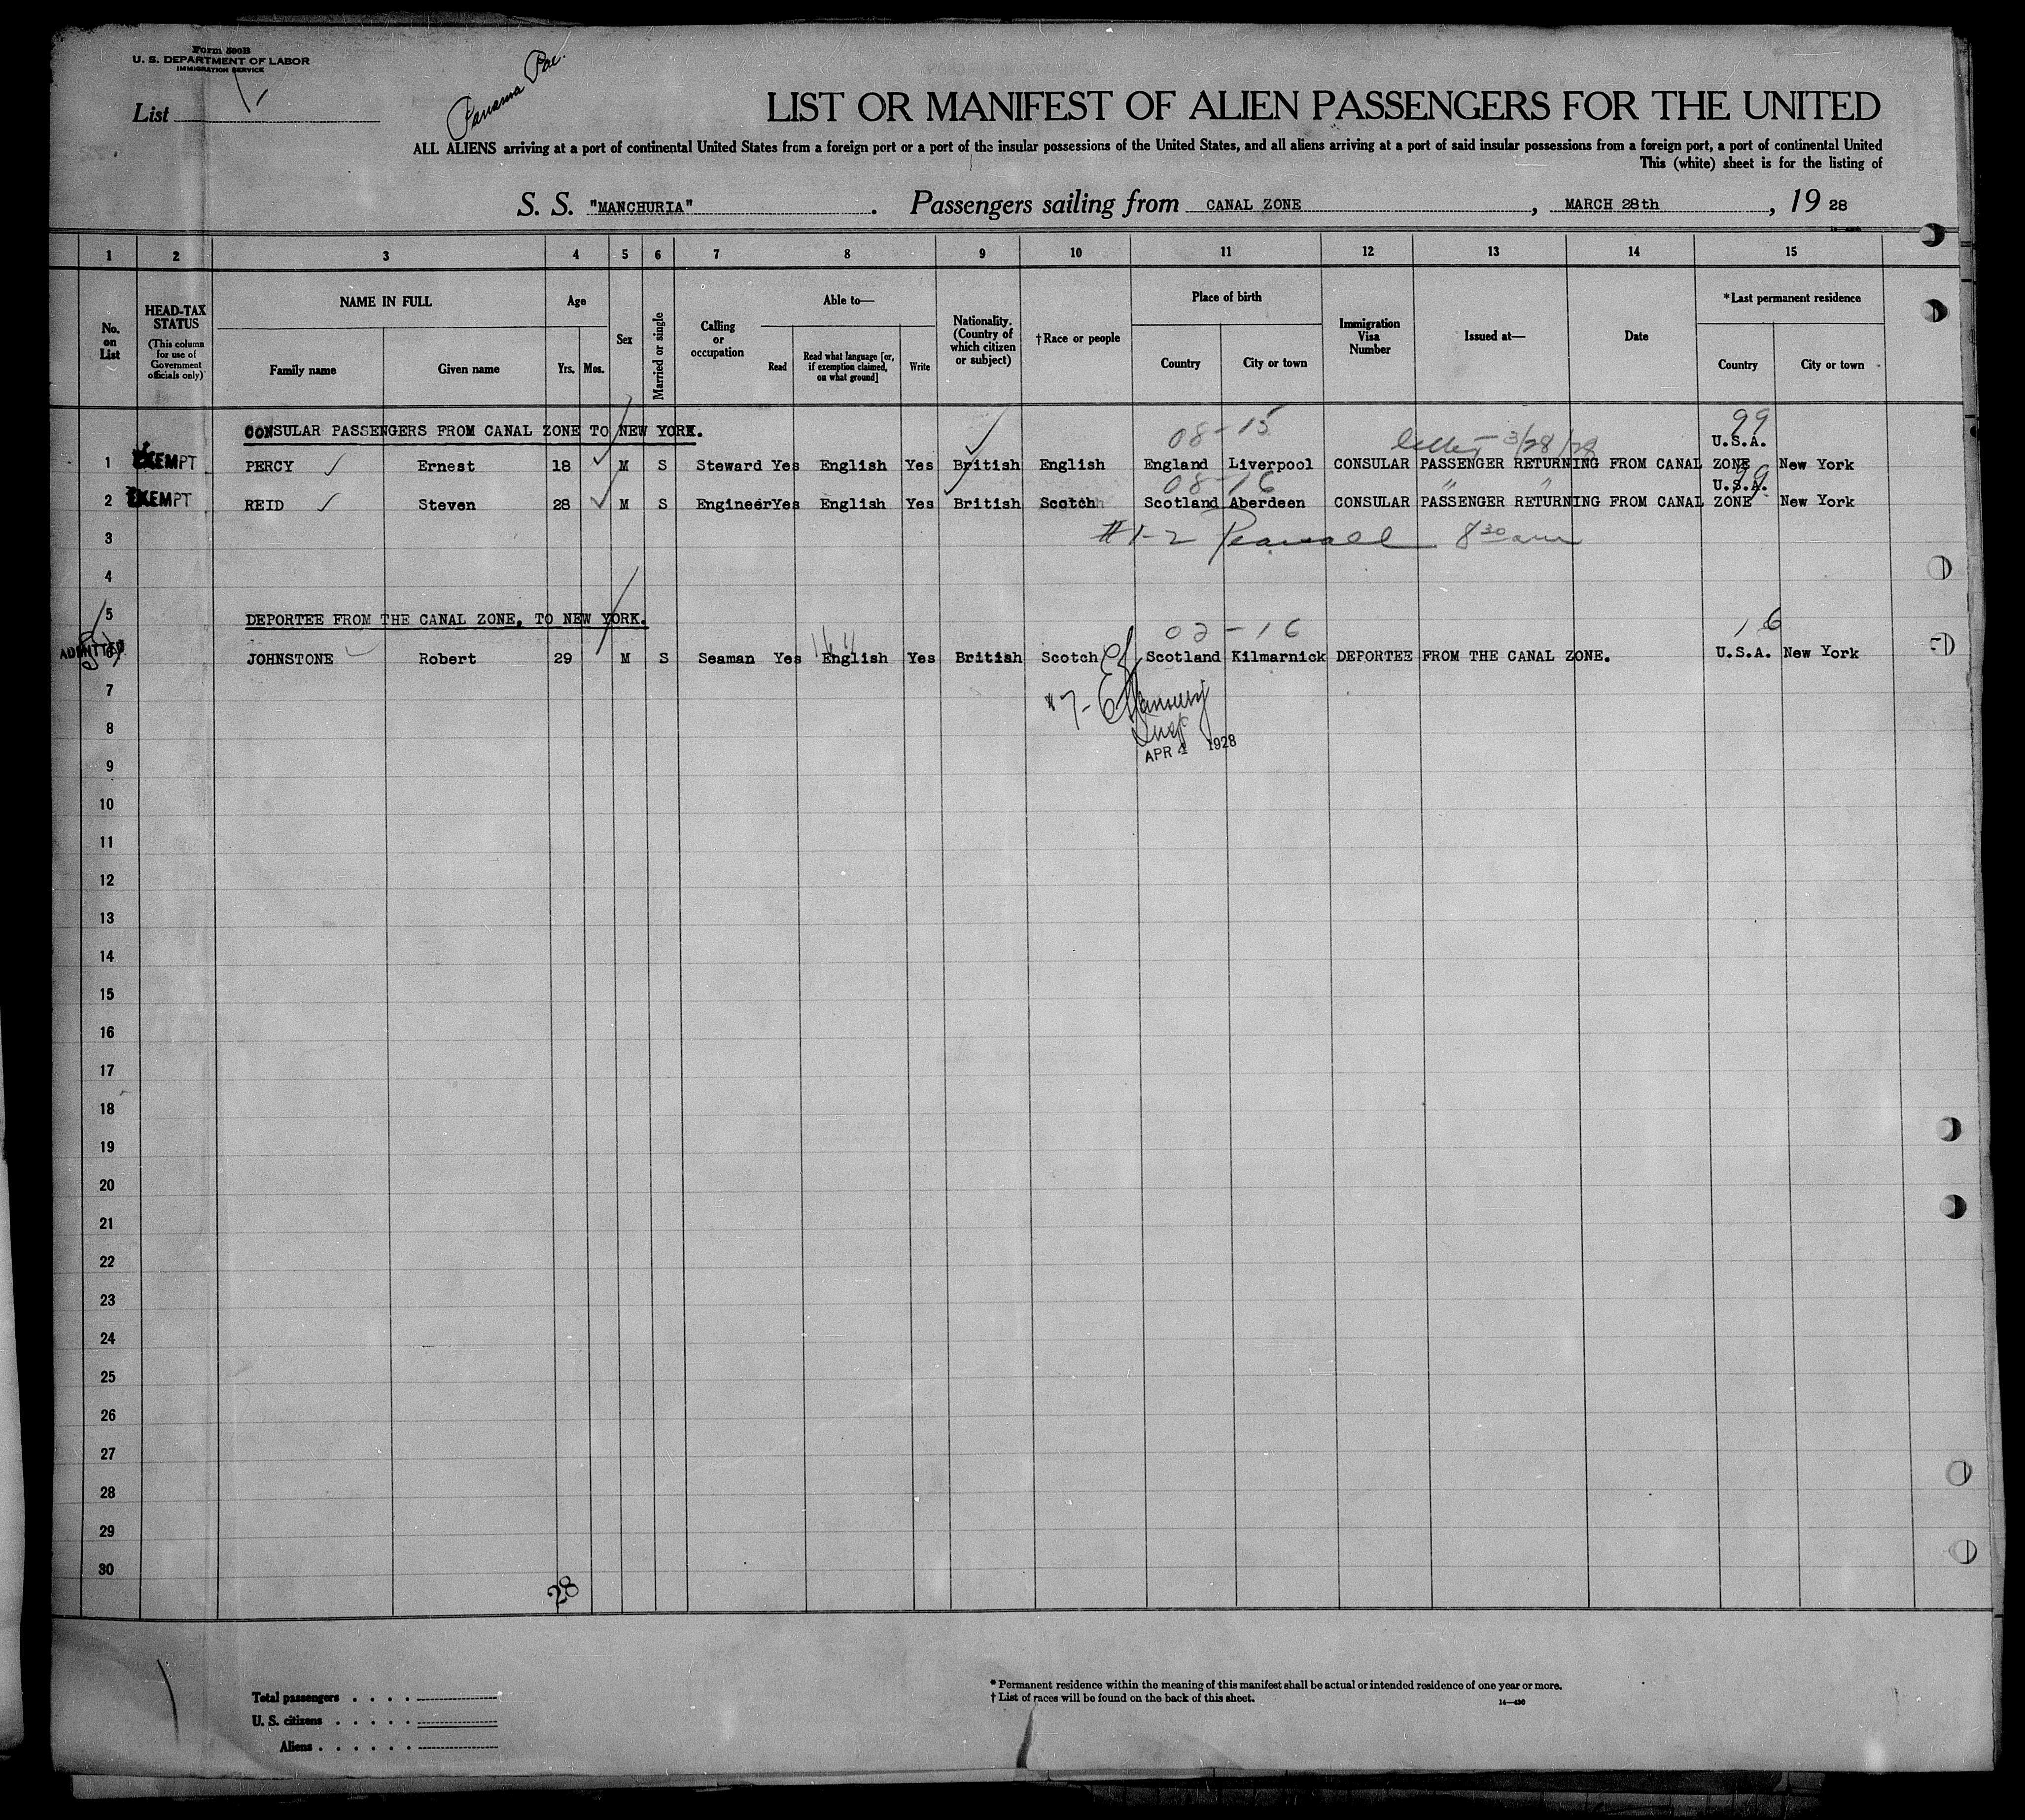 Form 500B
U. S. DEPARTMENT OF LABOR
IMMIGRATION SERVICE
List 1
Panama Pac.
LIST OR MANIFEST OF ALIEN PASSENGERS FOR THE UNITED
ALL ALIENS arriving at a port of continental United States from a foreign port or a port of the insular possessions of the United States, and all aliens arriving at a port of said insular possessions from a foreign port, a port of continental United
This (white) sheet is for the listing of
S. S. "MANCHURIA". Passengers sailing from CANAL ZONE, MARCH 28th, 19 28
1 2 3 4 5 6 7 8 9 10 11 12 13 14 15
No. on List
HEAD-TAX STATUS
(This column for use of Government officials only)
NAME IN FULL
Family name
Given name
Age
Yrs. Mos.
Sex
Married or single
Calling or occupation
Able to—
Read
Read what language [or, if exemption claimed, on what ground]
Write
Nationality. (Country of which citizen or subject)
†Race or people
Place of birth
Country
City or town
Immigration Visa Number
Issued at—
Date
*Last permanent residence
Country
City or town
CONSULAR PASSENGERS FROM CANAL ZONE TO NEW YORK.
08-15 letter 3/28/28 99
1 EXEMPT PERCY Ernest 18 M S Steward Yes English Yes British English England Liverpool CONSULAR PASSENGER RETURNING FROM CANAL ZONE U.S.A. New York
08-16 " " 99
2 EXEMPT REID Steven 28 M S Engineer Yes English Yes British Scotch Scotland Aberdeen CONSULAR PASSENGER RETURNING FROM CANAL ZONE U.S.A. New York
3 #1-2 8 30 am
4
5 DEPORTEE FROM THE CANAL ZONE, TO NEW YORK.
02-16 16
6 ADMITTED JOHNSTONE Robert 29 M S Seaman Yes English Yes British Scotch Scotland Kilmarnick DEPORTEE FROM THE CANAL ZONE. U.S.A. New York
7 #7-
8 Insp
9 APR 4 1928
10
11
12
13
14
15
16
17
18
19
20
21
22
23
24
25
26
27
28
29
30
28
Total passengers . . . .
U. S. citizens . . . . .
Aliens . . . . . .
* Permanent residence within the meaning of this manifest shall be actual or intended residence of one year or more.
† List of races will be found on the back of this sheet.
14—430